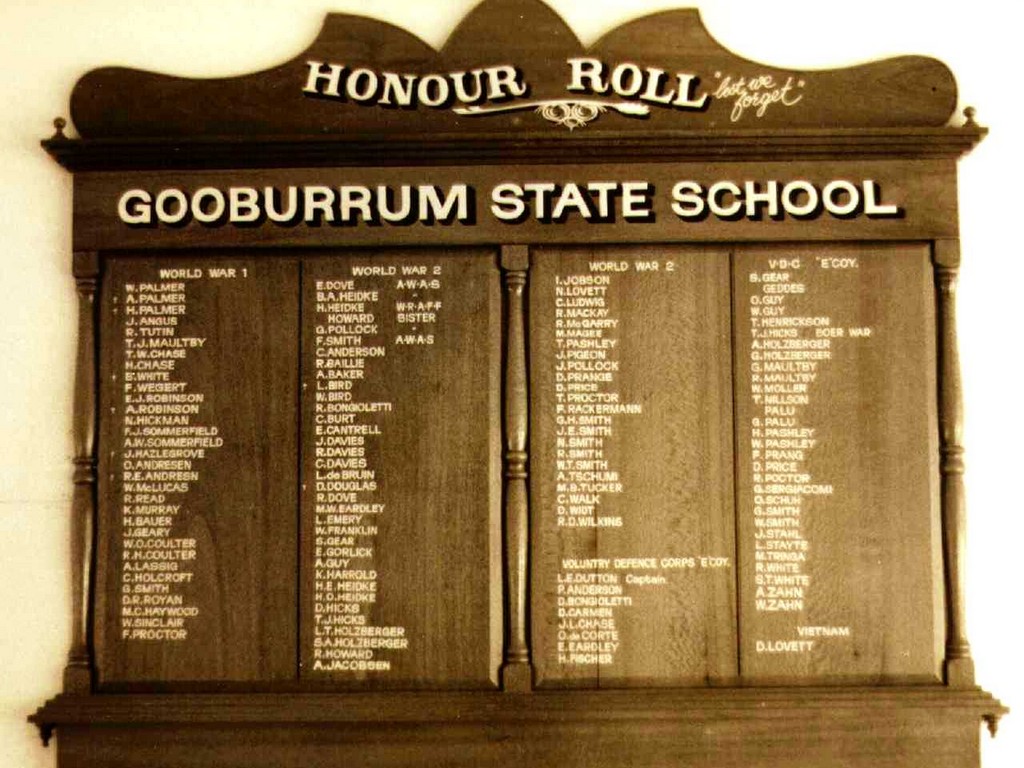 HONOUR ROLL "lest we forget"
GOOBURRUM STATE SCHOOL
WORLD WAR 1
W. PALMER
A. PALMER
H. PALMER
J. ANGUS
R. TUTIN
T. J. MAULTBY
T. W. CHASE
H. CHASE
E. WHITE
F. WEGERT
E. J. ROBINSON
A. ROBINSON
N. HICKMAN
F. J. SOMMERFIELD
A. W. SOMMERFIELD
J. HAZLEGROVE
O. ANDRESEN
R. E. ANDRESN
W. McLUCAS
R. READ
K. MURRAY
H. BAUER
J. GEARY
W. O. COULTER
R. H. COULTER
A. LASSIG
C. HOLCROFT
G. SMITH
D. R. ROYAN
M. C. HAYWOOD
W. SINCLAIR
F. PROCTOR
WORLD WAR 2
E. DOVE A·W·A·S
B. A. HEIDKE "
H. HEIDKE W·R·A·F·F
HOWARD SISTER
G. POLLOCK "
F. SMITH A·W·A·S
C. ANDERSON
R. BAILLIE
A. BAKER
L. BIRD
W. BIRD
R. BONGIOLETTI
C. BURT
E. CANTRELL
J. DAVIES
R. DAVIES
C. DAVIES
L. de BRUIN
D. DOUGLAS
R. DOVE
M. W. EARDLEY
L. EMERY
W. FRANKLIN
S. GEAR
E. GORLICK
A. GUY
K. HARROLD
H. E. HEIDKE
H. O. HEIDKE
D. HICKS
T. J. HICKS
L. T. HOLZBERGER
S. A. HOLZBERGER
R. HOWARD
A. JACOBSEN
WORLD WAR 2
I. JOBSON
N. LOVETT
C. LUDWIG
R. MACKAY
R. McGARRY
M. MAGEE
T. PASHLEY
J. PIGEON
J. POLLOCK
D. PRANGE
D. PRICE
T. PROCTOR
F. RACKERMANN
G. H. SMITH
J. E. SMITH
N. SMITH
R. SMITH
W. T. SMITH
A. TSCHUMI
M. B. TUCKER
C. WALK
D. WIDT
R. D. WILKINS
VOLUNTRY DEFENCE CORPS "E" COY.
L. E. DUTTON Captain.
P. ANDERSON
D. BONGIOLETTI
D. CARMEN
J. L. CHASE
O. de CORTE
E. EARDLEY
H. FISCHER
V·D·C "E" COY.
S. GEAR
GEDDES
O. GUY
W. GUY
T. HENRICKSON
T. J. HICKS BOER WAR
A. HOLZBERGER
G. HOLZBERGER
G. MAULTBY
R. MAULTBY
W. MOLLER
T. NILLSON
PALU
G. PALU
H. PASHLEY
W. PASHLEY
F. PRANG
D. PRICE
R. POCTOR
G. SERGIACOMI
O. SCHUH
G. SMITH
W. SMITH
J. STAHL
L. STAYTE
M. TRINGA
R. WHITE
S. T. WHITE
A. ZAHN
W. ZAHN
VIETNAM
D. LOVETT